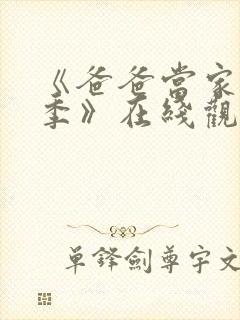 《爸爸當家
季》在綫觀
單鋒劍尊宇文